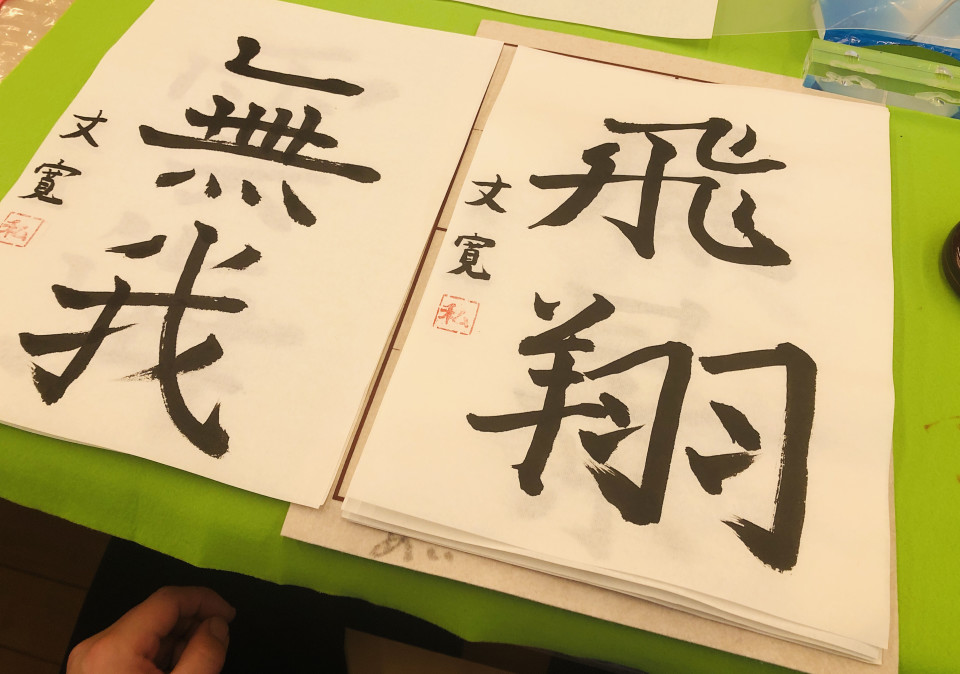 飛翔
文寛
私
無我
文寛
私